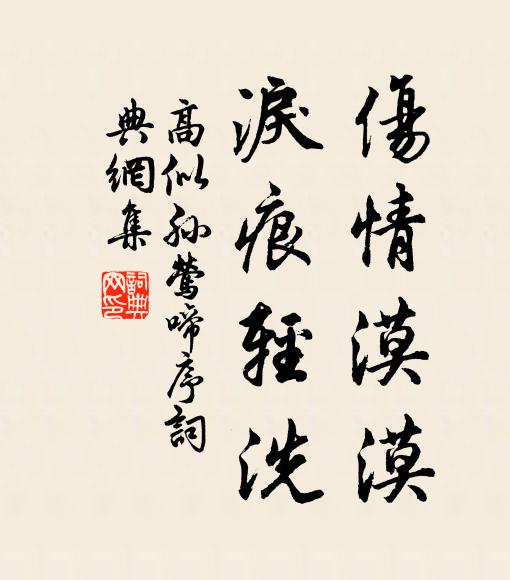 傷情漠漠
淚痕輕洗
高似孫鶯啼序詞
典網集
詞典網印